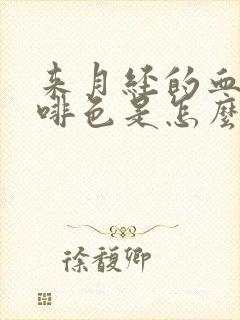 来月经的血
啡色是怎麼
徐馥卿